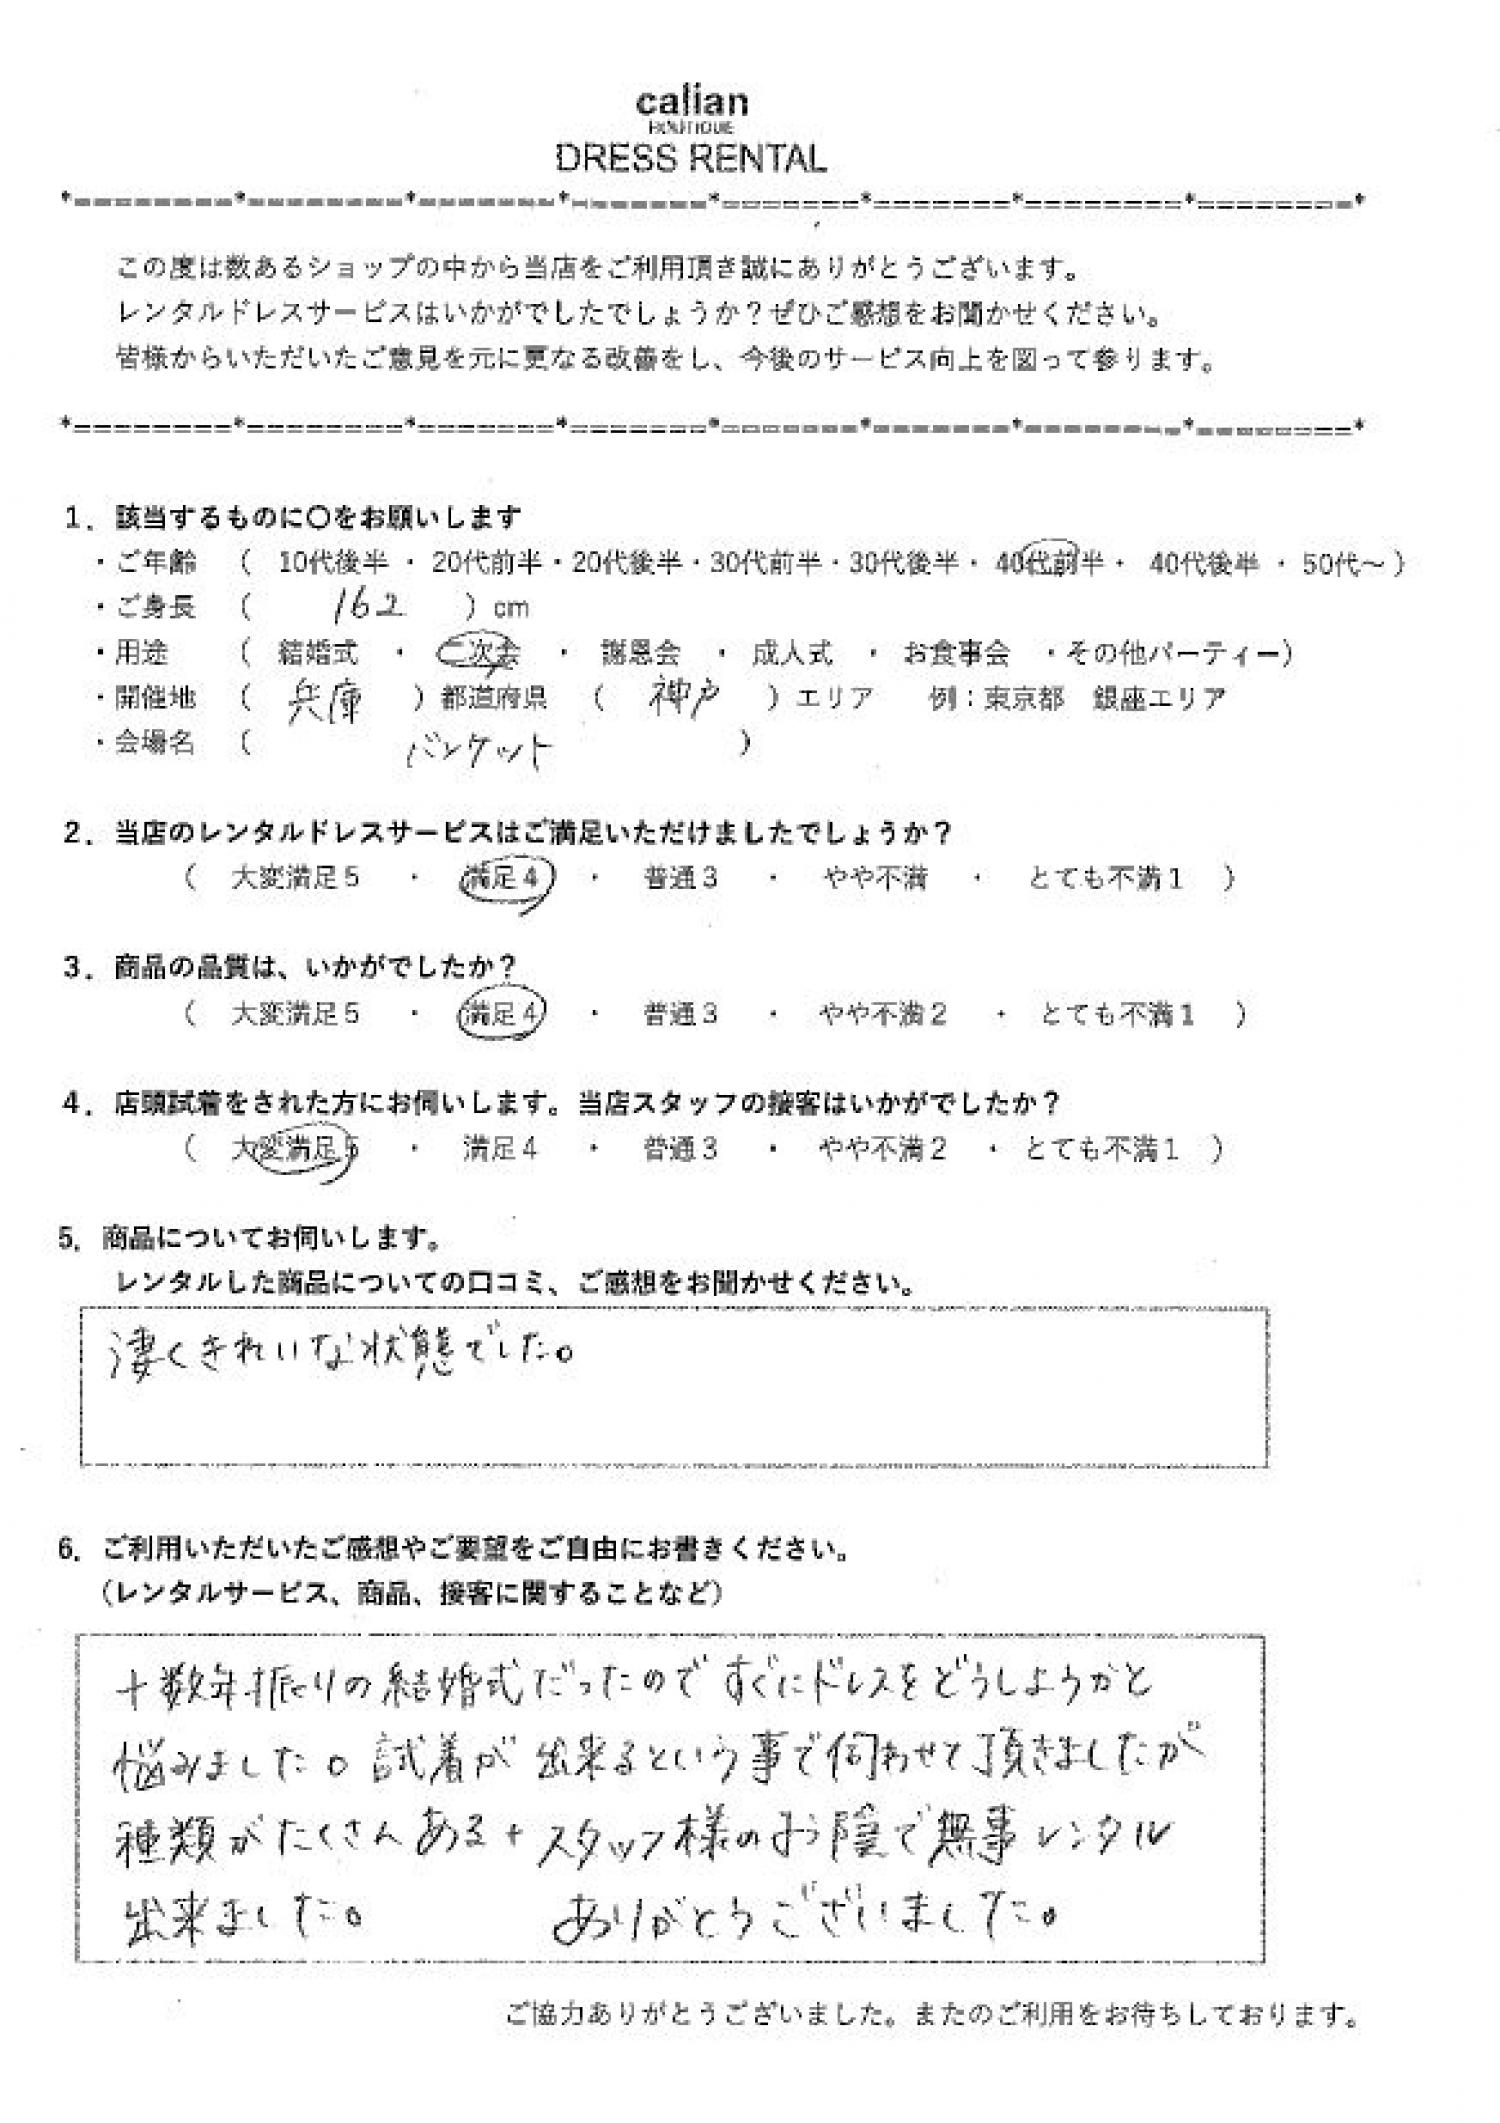 calian
BOUTIQUE
DRESS RENTAL
*=========*=========*========*========*========*========*=========*=========*
この度は数あるショップの中から当店をご利用頂き誠にありがとうございます。
レンタルドレスサービスはいかがでしたでしょうか？ぜひご感想をお聞かせください。
皆様からいただいたご意見を元に更なる改善をし、今後のサービス向上を図って参ります。
*=========*=========*========*========*========*========*=========*=========*
1．該当するものに〇をお願いします
・ご年齢 （ 10代後半 ・ 20代前半・20代後半・30代前半・30代後半・ 40代前半・ 40代後半 ・ 50代～ ）
・ご身長 （ 162 ）cm
・用途 （ 結婚式 ・ 二次会 ・ 謝恩会 ・ 成人式 ・ お食事会 ・その他パーティー）
・開催地 （ 兵庫 ）都道府県 （ 神戸 ）エリア 例：東京都 銀座エリア
・会場名 （ バンケット ）
2．当店のレンタルドレスサービスはご満足いただけましたでしょうか？
（ 大変満足5 ・ 満足4 ・ 普通3 ・ やや不満 ・ とても不満1 ）
3．商品の品質は、いかがでしたか？
（ 大変満足5 ・ 満足4 ・ 普通3 ・ やや不満2 ・ とても不満1 ）
4．店頭試着をされた方にお伺いします。当店スタッフの接客はいかがでしたか？
（ 大変満足5 ・ 満足4 ・ 普通3 ・ やや不満2 ・ とても不満1 ）
5．商品についてお伺いします。
レンタルした商品についての口コミ、ご感想をお聞かせください。
凄くきれいな状態でした。
6．ご利用いただいたご感想やご要望をご自由にお書きください。
（レンタルサービス、商品、接客に関することなど）
十数年振りの結婚式だったのですぐにドレスをどうしようかと
悩みました。試着が出来るという事で伺わせて頂きましたが
種類がたくさんある+スタッフ様のお陰で無事レンタル
出来ました。 ありがとうございました。
ご協力ありがとうございました。またのご利用をお待ちしております。